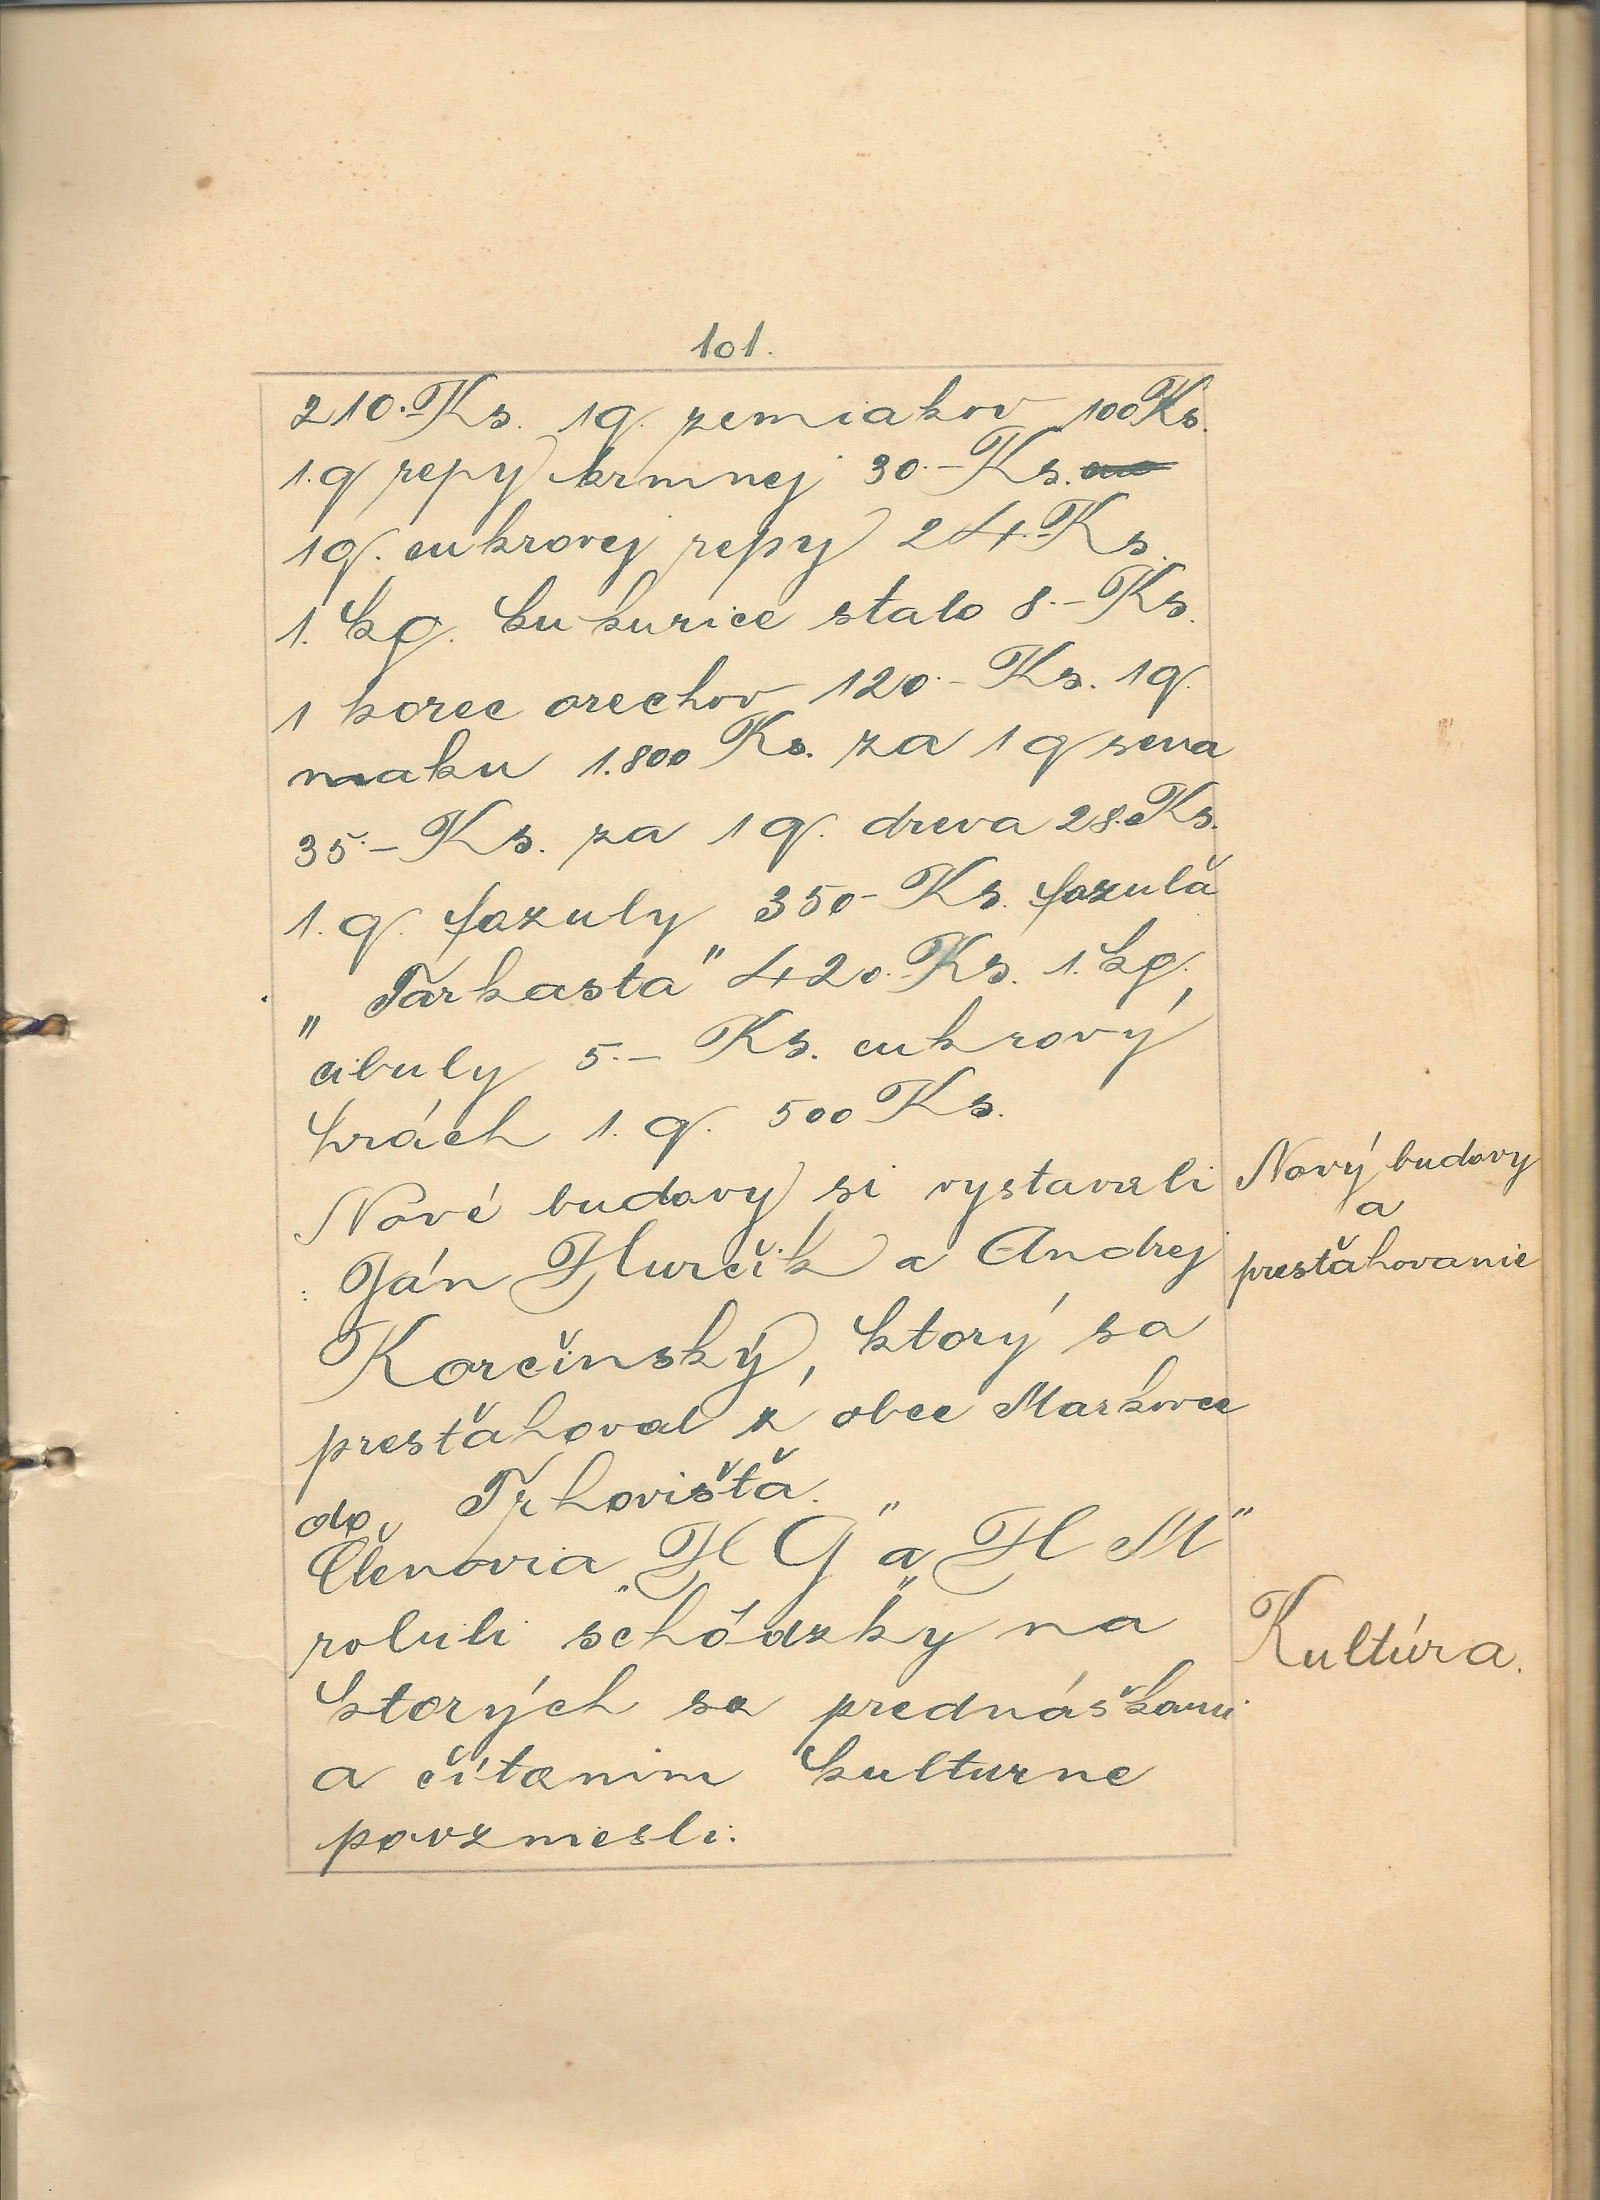 101.
210.- Ks. 1q. zemiakov 100 Ks.
1.q repy krmnej 30.- Ks.
1q. cukrovej repy 24.- Ks.
1. kg. kukurice stalo 8.- Ks.
1 korec orechov 120.- Ks. 1q.
maku 1.800 Ks. za 1 q sena
35.- Ks. za 1 q. dreva 28.- Ks.
1. q. fazuly 350- Ks. fazuľa
„Tarkastá" 420.- Ks. 1. kg.
cibuly 5.- Ks. cukrový
hrách 1. q. 500 Ks.
Nové budovy si vystavali
Ján Hurčík a Andrej
Korčinský, ktorý sa
presťahoval z obce Markovce
do Trhovišťa.
Členovia „H G" a „H M"
robili schôdzky na
ktorých sa prednáškami
a čítanim kulturne
povzniesli.
Nový budovy
a
presťahovanie
Kultúra.